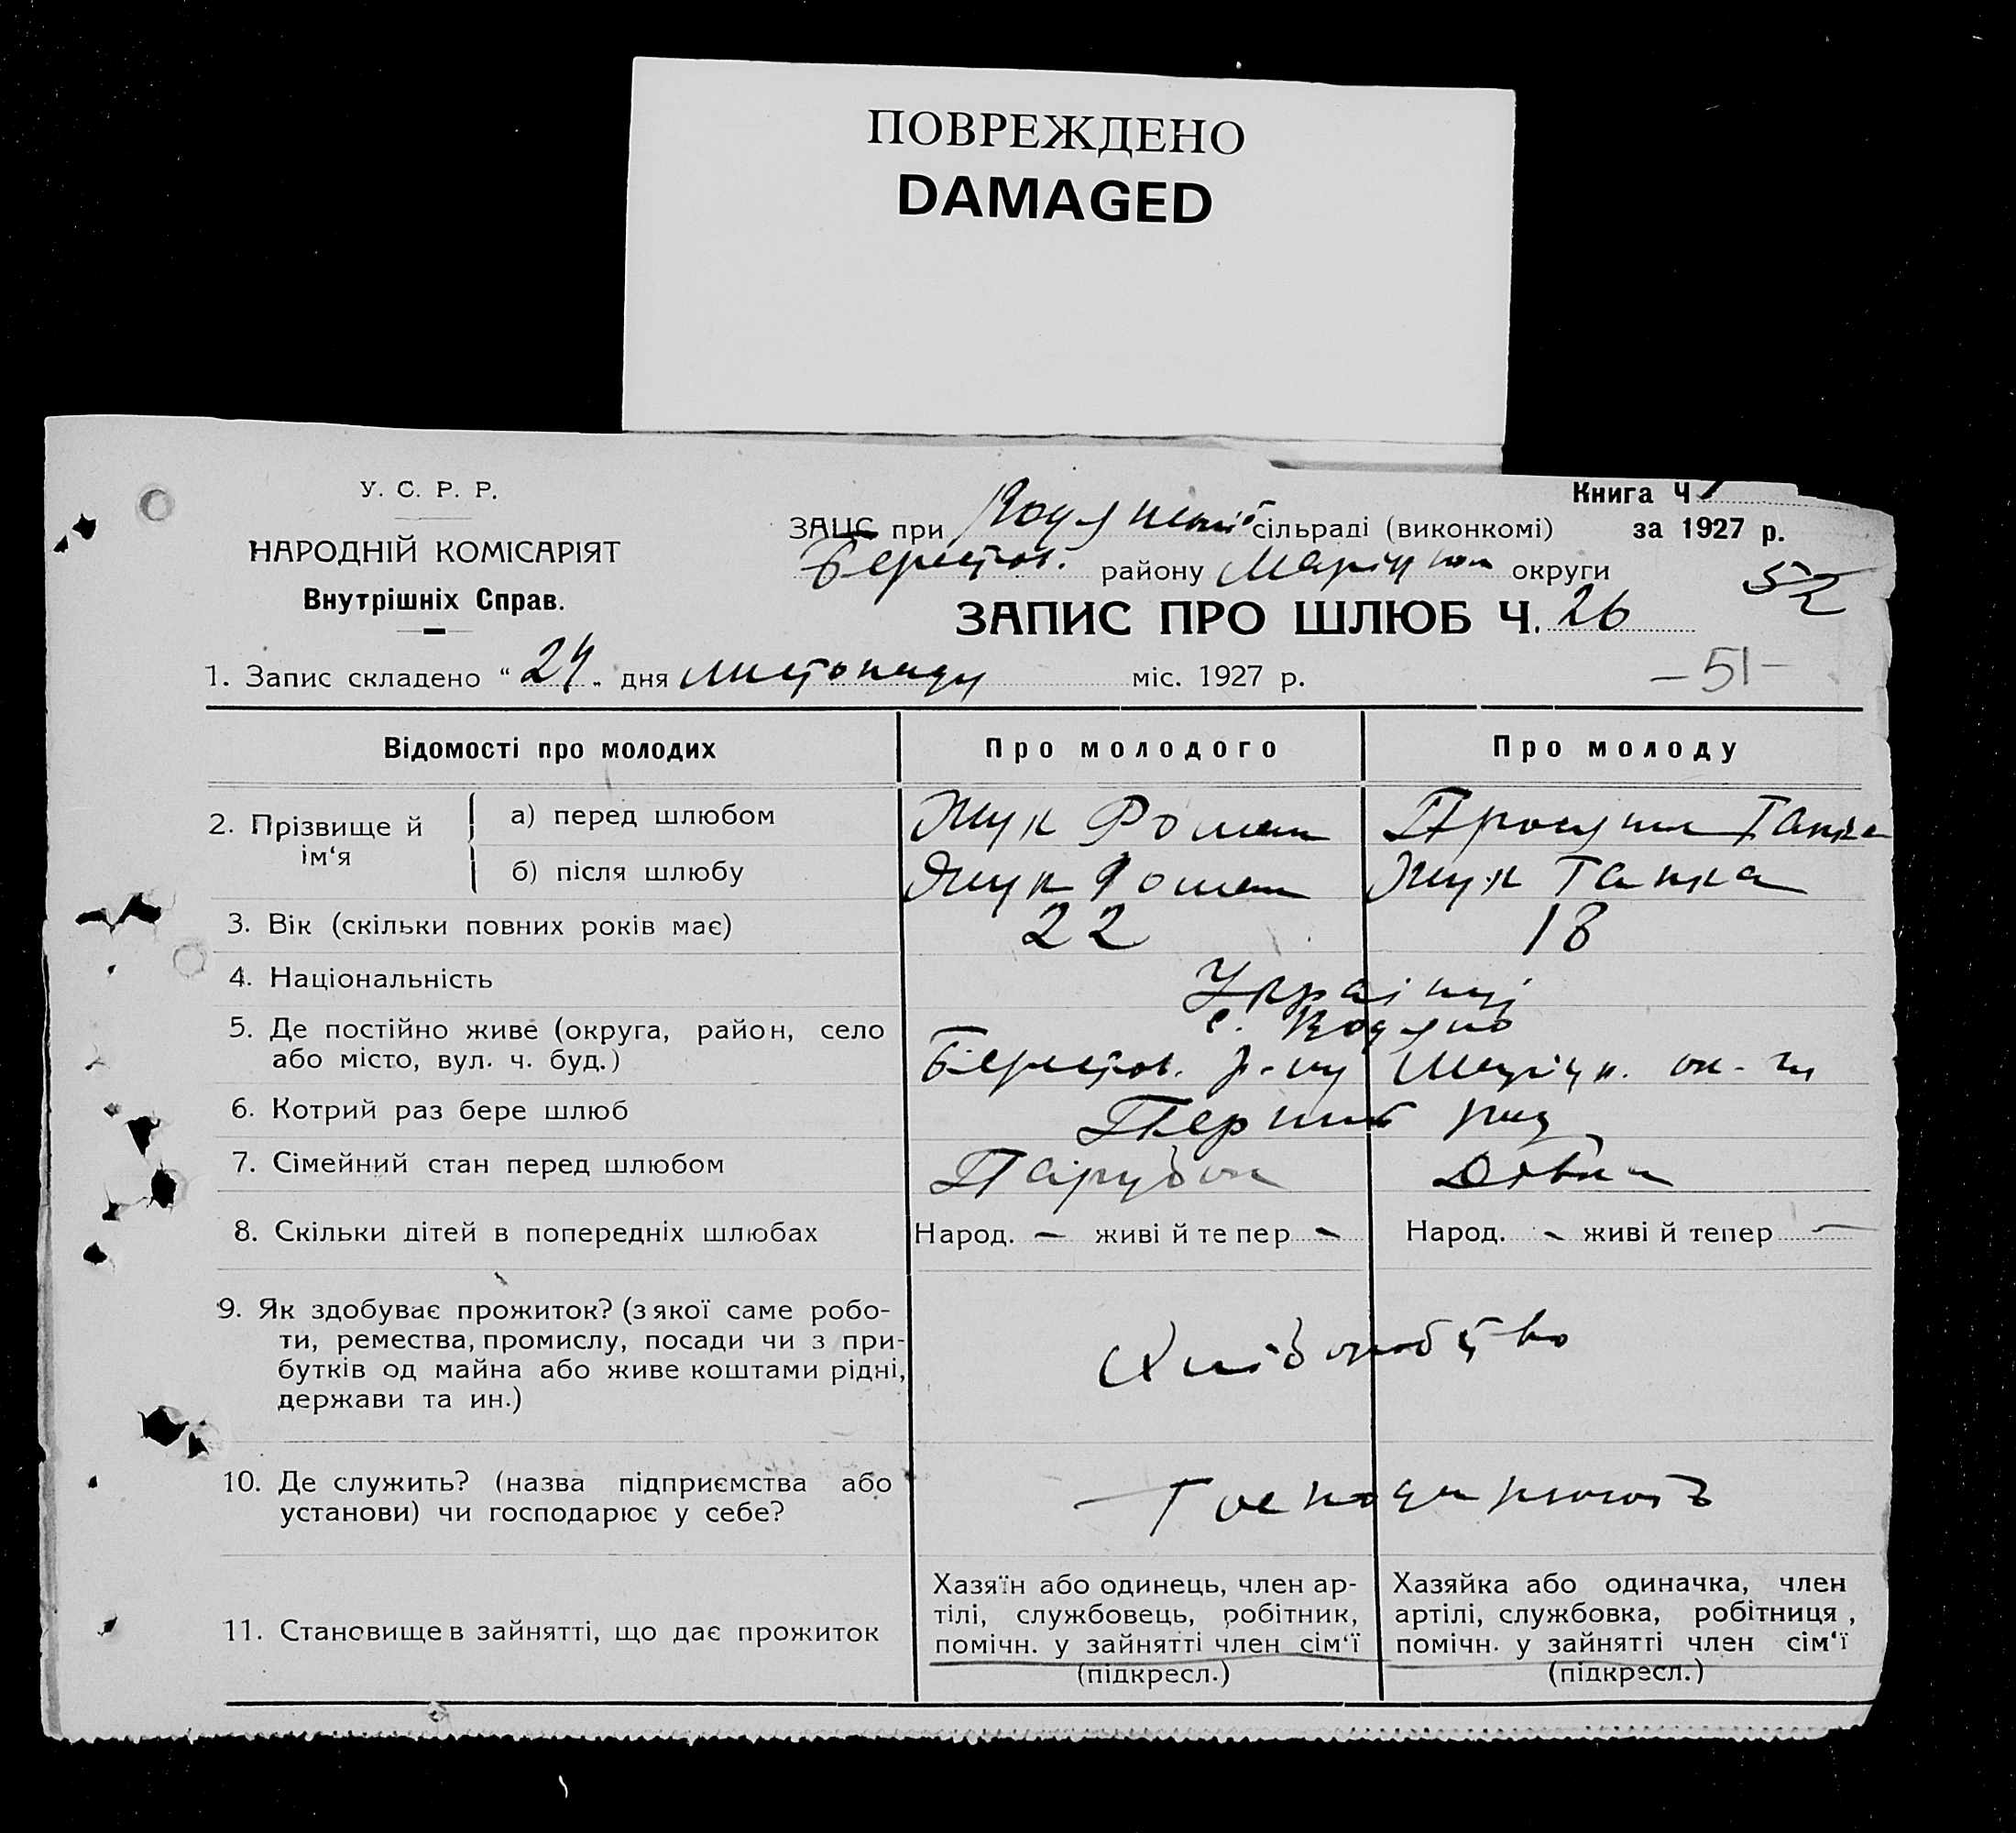 ПОВРЕЖДЕНО
DAMAGED
У. С. Р. Р.
НАРОДНІЙ КОМІСАРІЯТ
Внутрішніх Справ.
Книга Ч
ЗАЦС при сільраді (виконкомі) за 1927 р.
Берестов. району Маріуп округи 52
ЗАПИС ПРО ШЛЮБ Ч. 26
1. Запис складено “ 24 „ дня листопаду міс. 1927 р. – 51 –
Відомості про молодих Про молодого Про молоду
2. Прізвище й ім‘я
а) перед шлюбом Жук Роман Ганка
б) після шлюбу Жук Роман Жук Ганка
3. Вік (скільки повних років має) 22 18
4. Національність Українці
5. Де постійно живе (округа, район, село с. Водяно
або місто, вул. ч. буд.) Берестов. р-ну Маріуп. ок-ги
6. Котрий раз бере шлюб Перший раз
7. Сімейний стан перед шлюбом Парубок Дівка
8. Скільки дітей в попередніх шлюбах Народ. – живі й тепер – Народ. – живі й тепер –
9. Як здобуває прожиток? (з якої саме робо-
ти, ремества, промислу, посади чи з при-
бутків од майна або живе коштами рідні,
держави та ин.)
Хліборобство
10. Де служить? (назва підприємства або
установи) чи господарює у себе?
Господарюють
11. Становище в зайнятті, що дає прожиток
Хазяїн або одинець, член ар-
тілі, службовець, робітник,
помічн. у зайнятті член сім‘ї
(підкресл.)
Хазяйка або одиначка, член
артілі, службовка, робітниця,
помічн. у зайнятті член сім‘ї
(підкресл.)